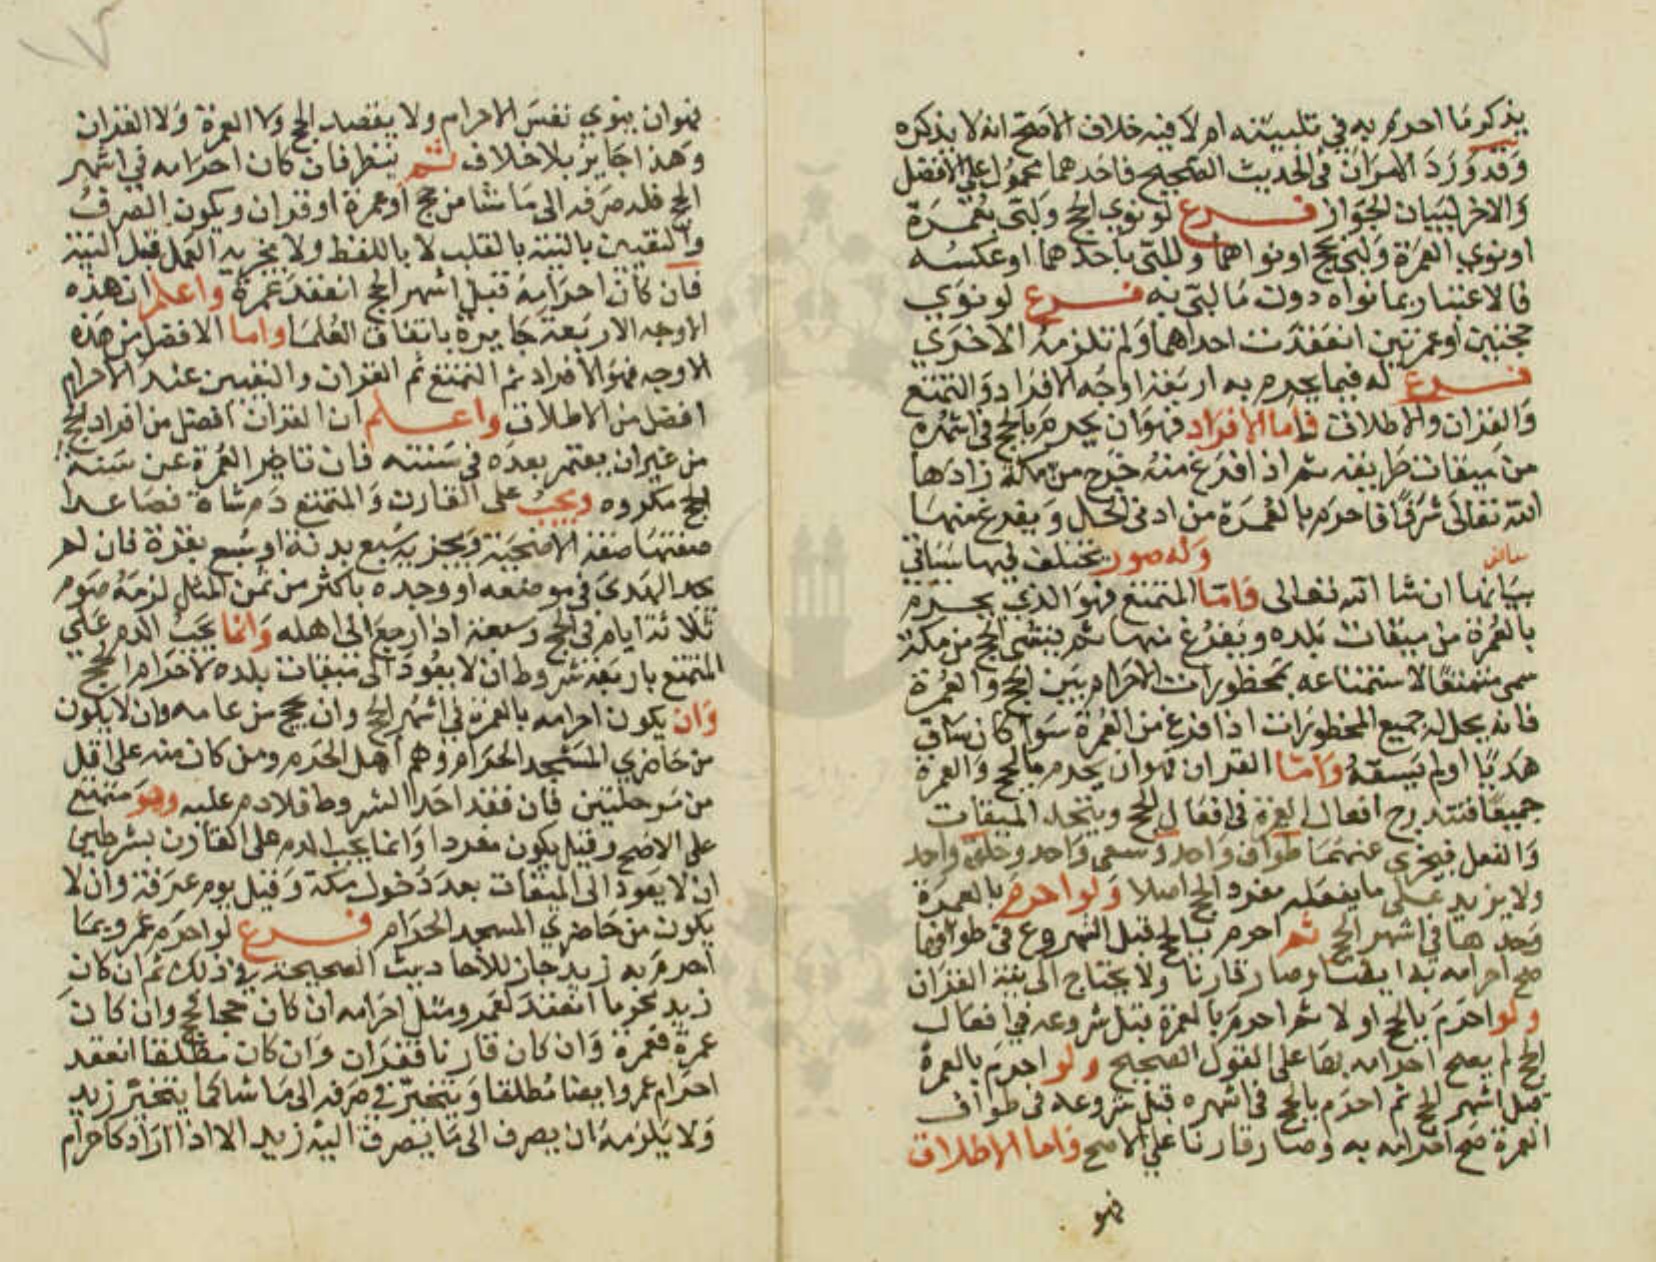 يذكر ما احرم به في تلبيته ام لا فيه خلاف الاصح انه لا يذكره
وقد ورد الامران في الحديث الصحيح فاحدهما محمول علي الافضل
والاخر لبيان الجواز فرع لو نوي الحج ولبى بعمرة
او نوي العمرة ولبى بحج او نواهما ولبى باحدهما او عكسه
فالاعتبار بما نواه دون ما لبى به فرع لو نوي
حجتين او عمرتين انعقدت احداهما ولم تلزمه الاخري
فرع له فيما يحرم به اربعة اوجه الافراد والتمتع
والقران والاطلاق فاما الافراد فهو ان يحرم بالحج في اشهره
من ميقات طريقه ثم اذا فرغ منه خرج من مكة زادها
الله تعالى شرفا فاحرم بالعمرة من ادنى الحل ويفرغ منها
وله صور تختلف فيها سياتي
بيانها ان شا الله تعالى واما التمتع فهو الذي يحرم
بالعمرة من ميقات بلده ويفرغ منها ثم ينشي الحج من مكة
سمى متمتعا لاستمتاعه بمحظورات الاحرام بين الحج والعمرة
فانه يحل له جميع المحظورات اذا فرغ من العمرة سوا كان ساق
هديا او لم يسقه واما القران فهو ان يحرم بالحج والعمرة
جميعا فتندرج افعال العمرة في افعال الحج ويتحد الميقات
والفعل فيجزي عنهما طواف واحد وسعى واحد وحلق واحد
ولا يزيد على ما يفعله مفرد الحج اصلا ولو احرم بالعمرة
وحدها في اشهر الحج ثم احرم بالحج قبل الشروع في طوافها
صح احرامه به ايضا وصار قارنا ولا يحتاج الى نية القران
ولو احرم بالحج اولا ثم احرم بالعمرة قبل شروعه في افعال
الحج لم يصح احرامه بها على القول الصحيح ولو احرم بالعمرة
قبل اشهر الحج ثم احرم بالحج في اشهره قبل شروعه في طواف
العمرة صح احرامه به وصار قارنا علي الاصح واما الاطلاق
فهو
فهو ان ينوي نفس الاحرام ولا يقصد الحج ولا العمرة ولا القران
وهذا جايز بلا خلاف ثم ينظر فان كان احرامه في اشهر
الحج فله صرفه الى ما شا من حج او عمرة او قران ويكون الصرف
والتعيين بالنية بالقلب لا باللفظ ولا يجزيه العمل قبل النية
فان كان احرامه قبل اشهر الحج انعقد عمرة واعلم ان هذه
الاوجه الاربعة جايزة باتفاق العلما واما الافضل من هذه
الاوجه فهو الافراد ثم التمتع ثم القران والتعيين عند الاحرام
افضل من الاطلاق واعلم ان القران افضل من افراد الحج
من غير ان يعتمر بعده في سنته فان تاخير العمرة عن سنة
الحج مكروه ويجب على القارن والمتمتع دم شاة فصاعدا
صفتها صفة الاضحية ويجزيه سبع بدنة او سبع بقرة فان لم
يجد الهدى في موضعه او وجده باكثر من ثمن المثل لزمه صوم
ثلاثة ايام في الحج وسبعة اذا رجع الى اهله وانما يجب الدم على
المتمتع باربعة شروط ان لا يعود الى ميقات بلده لاحرام الحج
وان يكون احرامه بالعمرة في اشهر الحج وان يحج من عامه وان لا يكون
من حاضري المسجد الحرام وهم اهل الحرم ومن كان منه على اقل
من مرحلتين فان فقد احد الشروط فلا دم عليه وهو متمتع
على الاصح وقيل يكون مفردا وانما يجب الدم على القارن بشرطين
ان لا يعود الى الميقات بعد دخول مكة وقيل يوم عرفة وان لا
يكون من حاضري المسجد الحرام فرع لو احرم عمرو بما
احرم به زيد جاز للاحاديث الصحيحة في ذلك ثم ان كان
زيد محرما انعقد لعمرو مثل احرامه ان كان حجا فحج وان كان
عمرة فعمرة وان كان قارنا فقران وان كان مطلقا انعقد
احرام عمرو ايضا مطلقا ويتخير في صرفه الى ما شا كما يتخير زيد
ولا يلزمه ان يصرف الى ما يصرف اليه زيد الا اذا اراد كاحرام